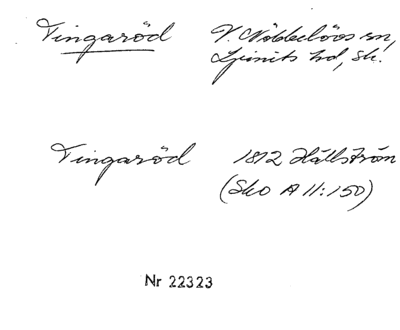 Tingaröd V. Nöbbelövs sn,
Ljunits hd, Sk.
Tingaröd 1812 Hällström
(Sko A 11:150)
Nr 22323